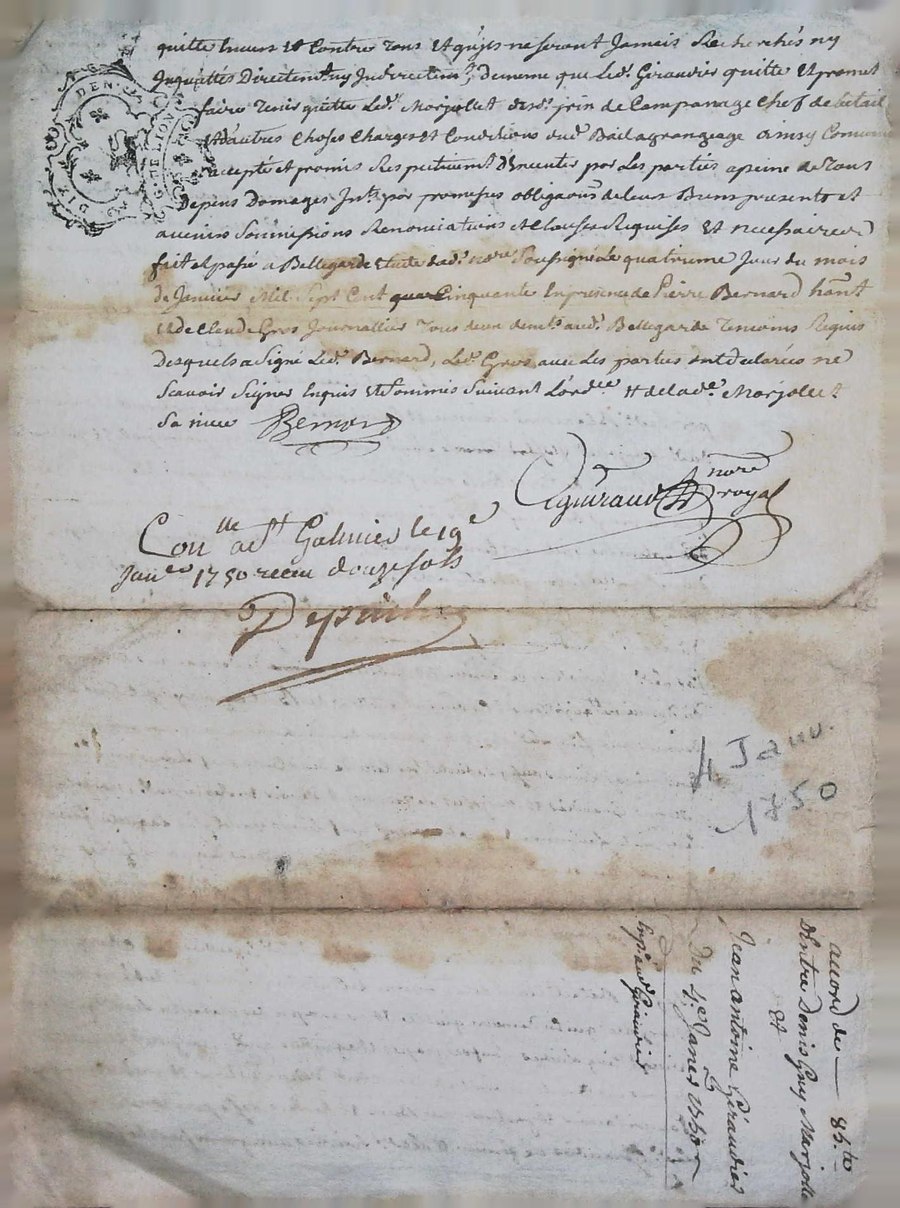 quitte envers et Contre tous et qu'jes ne seront Jamais Recherchés ny
Inquiettés Directem.t ny Indirectem.t, demême que led. Giraudier quitte et promet
faire tenir quitte led. Morjollet de foin de Campanage Chef de betail
et dautres Choses Charges et Conditions dud. Bail a grangeage ainsy Convenu
accepté et promis Respectivement d'Executer par Les parties a peine de tous
Depens Domages Int. par promesses obligaons de leurs Biens presents et
avenirs Sommissions Renonciations et Clauses Requises et necessaires
fait et passé a Bellegarde Etude dud. no.re Soussigné Le quatrieme Jour du mois
de Janvier Mil Sept Cent Cinquante En presence de Pierre Bernard hant
et de Claude Gros Journallier tous deux demts aud. Bellegarde temoins Requis
Desquels a Signé led. Bernard, led. Gros avec Les parties ont declarées ne
Scavoir Signer Enquis et Sommis Suivant L'ord.ce # de lad.e Morjollet
Sa mere Bernard
no.re
royal
Con.lle a St Galmier le 19e
Janer 1750 receu douze sols
4 Janv.
1750
accord de — 86.tt
D'Entre Denis Guy Marjollet
Et
Jean Antoine Giraudier
Du 4.e Janer 1750
Exp. aud. Giraudier